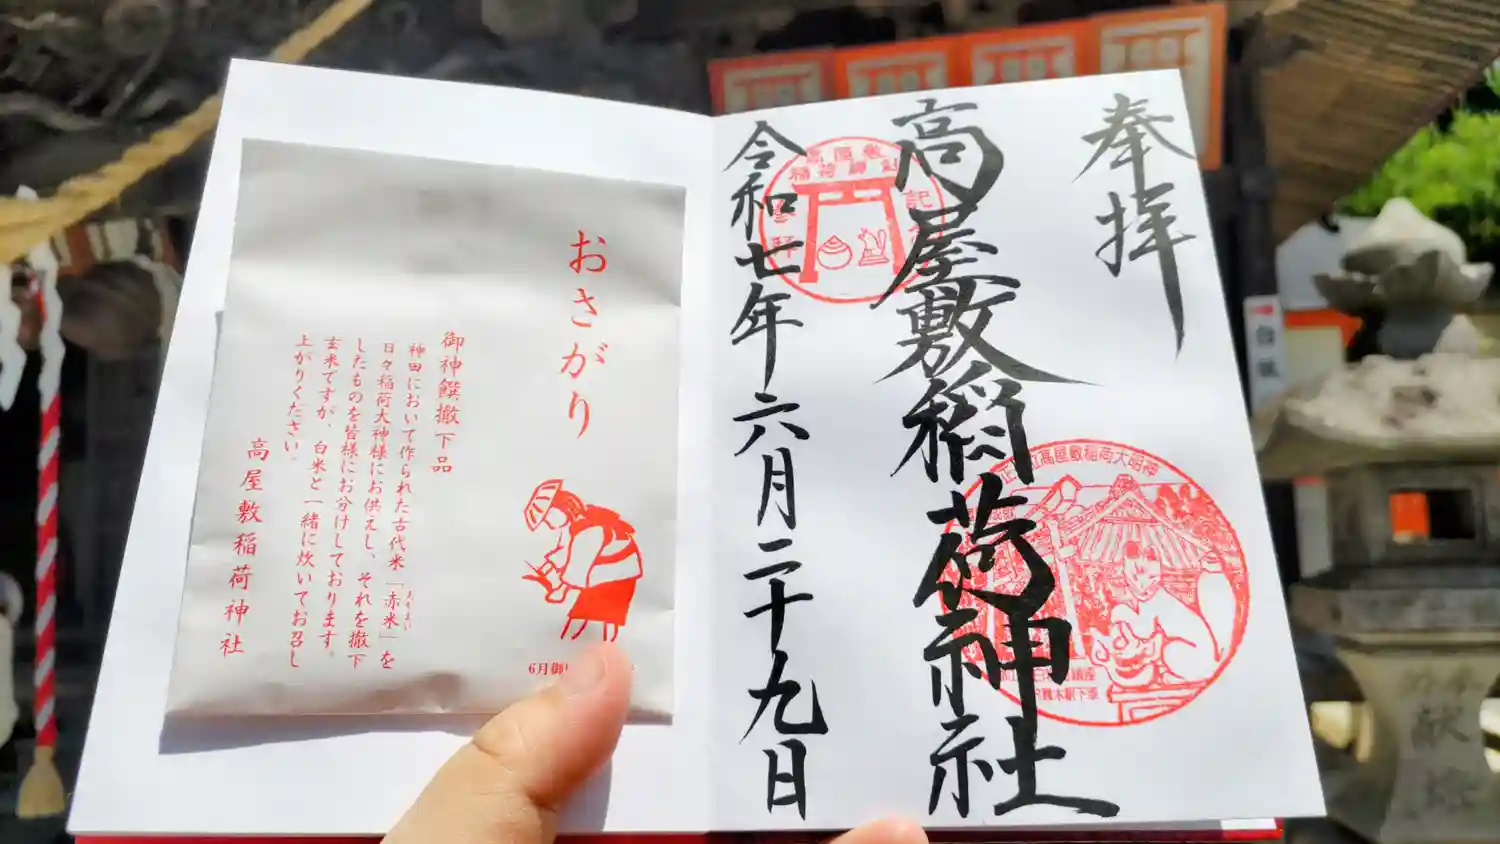 奉拝
高屋敷稲荷神社
令和七年六月二十九日
高屋敷
稲荷神社
正一位高屋敷稲荷大明神
おさがり
御神饌撤下品
神田において作られた古代米「赤米」を
日々稲荷大神様にお供えし、それを撤下
したものを皆様にお分けしております。
玄米ですが、白米と一緒に炊いてお召し
上がりください。
高屋敷稲荷神社
6月御